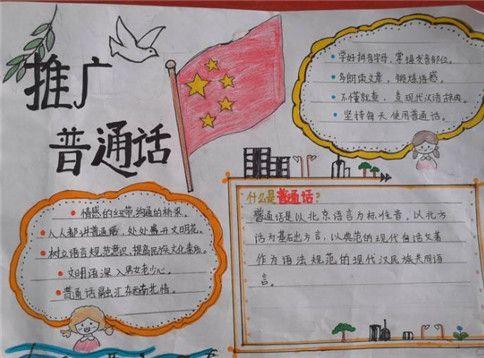 推广
普通话
学好拼音字母,掌握发音部位。
多朗读文章,锻炼语感。
不懂就意,查现代汉语词典。
坚持每天使用普通话。
情感的纽带,沟通的桥梁。
人人都讲普通话,处处盛开文明花。
树立语言规范意识,提高民族文化素质。
文明语深入男女老少心。
普通话融汇东西南北情。
什么是普通话?
普通话是以北京语言为标准音,以北方
话为基础方言,以典范的现代白话文著
作为语法规范的现代汉民族共同语
言。